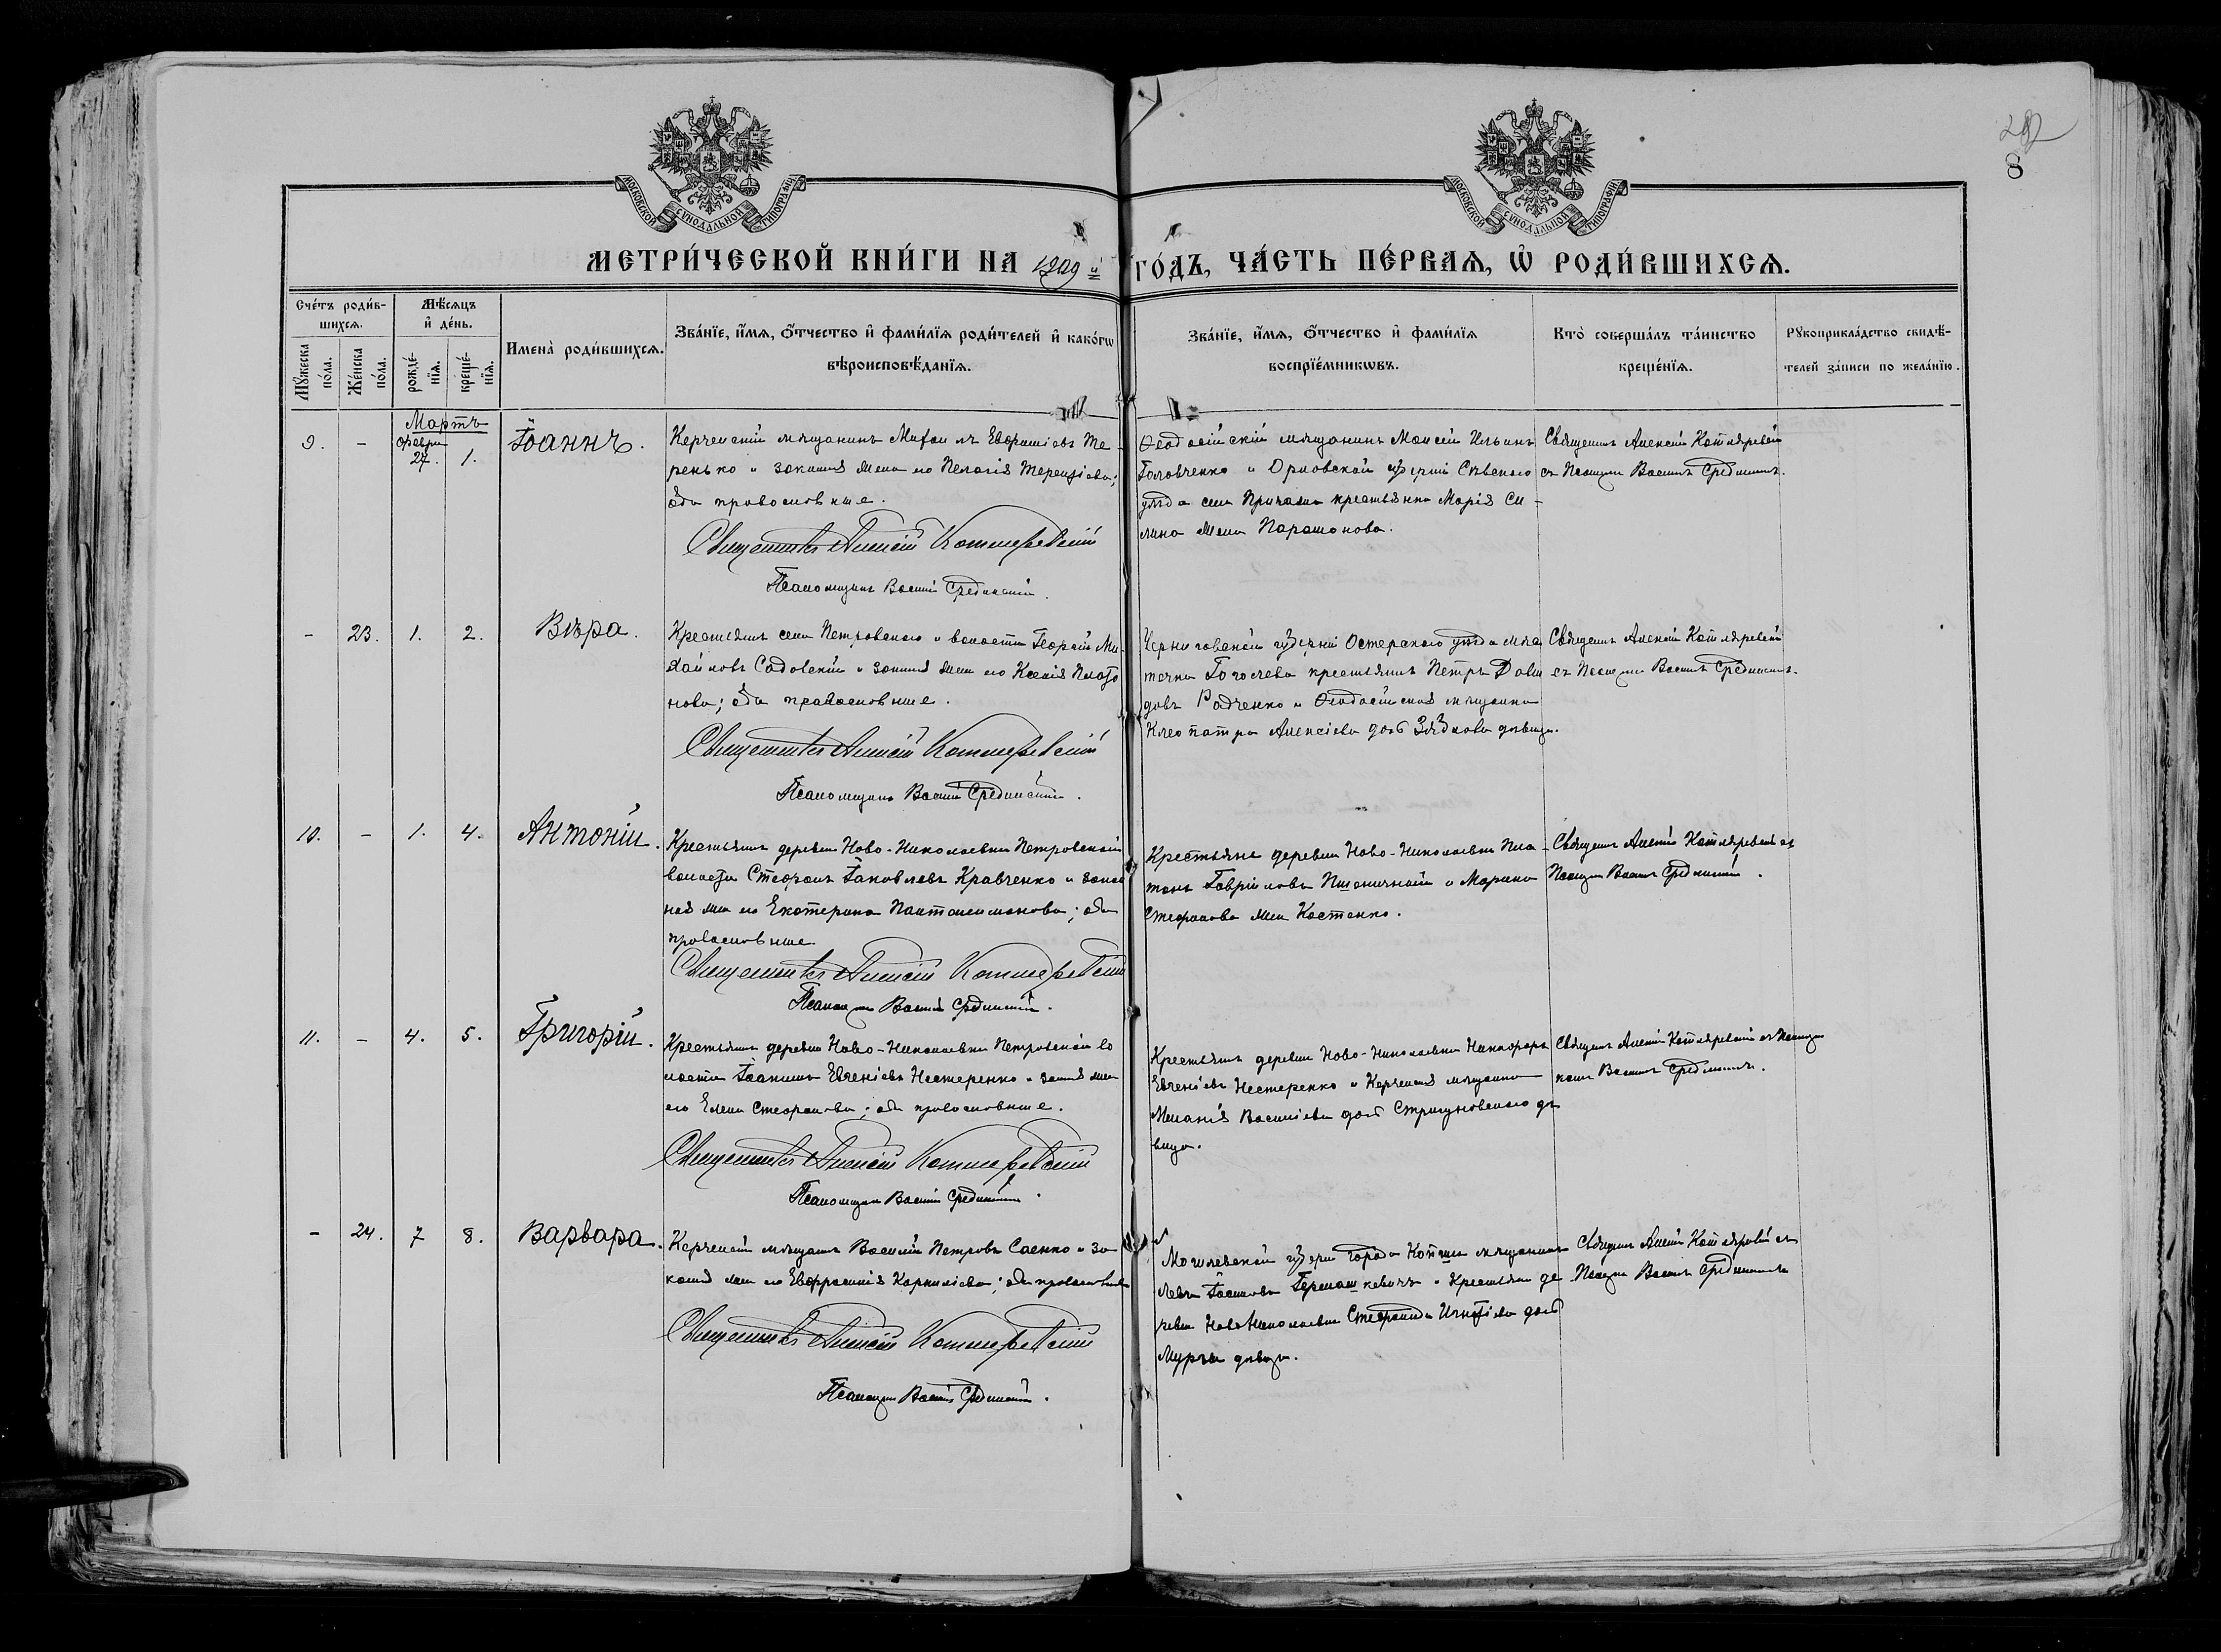 282
8
МОСКОВСКОЙ СѴНОДАЛЬНОЙ ТИПОГРАФІИ
МОСКОВСКОЙ СѴНОДАЛЬНОЙ ТИПОГРАФІИ
МЕТРИ́ЧЕСКОЙ КНИ́ГИ НА 1909 й ГО́ДЪ, ЧА́СТЬ ПЕ́РВАѦ, Ѡ҆ РОДИ́ВШИХСѦ.
Сче́тъ роди́в-
шихсѧ.
Мѣ́сѧцъ
и҆ де́нь.
Мꙋ́жеска
по́ла.
Же́нска
по́ла.
рожде́-
нїѧ.
креще́-
нїѧ.
Имена̀ роди́вшихсѧ.
Зва́нїе, и҆́мѧ, ѻ҆́тчество и҆ фами́лїѧ роди́телей и҆ како́гѡ
вѣроисповѣ́данїѧ.
Зва́нїе, и҆́мѧ, ѻ҆́тчество и҆ фами́лїѧ
воспрїе́мникѡвъ.
Кто̀ соверша́лъ та́инство
креще́нїѧ.
Рꙋкоприкла́дство свидѣ́-
телей за́писи по жела́нїю.
Мартъ
9. - Февр. 27. 1. Іоаннъ.
Керченскій мѣщанинъ Михаилъ Евѳиміевъ Те-
ренько и законная жена его Пелагія Терентіева;
оба православные.
Священникъ Алексій Котляревскій
Псаломщикъ Василій Срединскій.
Ѳеодосійскій мѣщанинъ Моисей Ильинъ
Головченко и Орловской губерніи Сѣвскаго
уѣзда села крестьянка Марія Си-
лина жена Парамонова.
Священникъ Алексій Котляревскій
съ Псаломщ. Василіемъ Срединскимъ.
- 23. 1. 2. Вѣра.
Крестьянинъ села Петровскаго и волости Георгій Ми-
хайловъ Садовскій и законная жена его Ксенія Плато
нова; оба православные.
Священникъ Алексій Котляревскій
Псаломщикъ Василій Срединскій.
Черниговской губерніи Остерскаго уѣзда мѣс
течка Гоголева крестьянинъ Петръ Дави
довъ Радченко и Ѳеодосійская мѣщанка
Клеопатра Алексіева дочь дѣвица.
Священникъ Алексій Котляревскій
съ Псаломщ. Василіемъ Срединскимъ.
10. - 1. 4. Антоній.
Крестьянинъ деревни Ново-Николаевки Петровской
волости Стефанъ Іаковлевъ Кравченко и закон
ная жена его Екатерина Пантелеимонова; оба
православные.
Священникъ Алексій Котляревскій
Псаломщикъ Василій Срединскій.
Крестьяне деревни Ново-Николаевки Пла-
тонъ Гавріиловъ Пшеничный и Марина
Стефанова жена Костенко.
Священникъ Алексій Котляревскій съ
Псаломщ. Василіемъ Срединскимъ.
11. - 4. 5. Григорій.
Крестьянинъ деревни Ново-Николаевки Петровской во
лости Іоаннъ Евгеніевъ Нестеренко и законная жена
его Елена Стефанова; оба православные.
Священникъ Алексій Котляревскій
Псаломщикъ Василій Срединскій.
Крестьянинъ деревни Ново-Николаевки Никифоръ
Евгеніевъ Нестеренко и Керченская мѣщанка
Меланія Василіева дочь Стригуновскаго дѣ
вица.
Священникъ Алексій Котляревскій съ Псаломщи
комъ Василіемъ Срединскимъ.
- 24. 7 8. Варвара.
Керченскій мѣщанинъ Василій Петровъ Саенко и за
конная жена его Евфросинія Корниліева; оба православные
Священникъ Алексій Котляревскій
Псаломщикъ Василій Срединскій.
Могилевской губерніи города мѣщанинъ
Левъ Іосифовъ Гермашкевичъ и Крестьянка де
ревни НовоНиколаевки Стефанида Игнатіева дочь
Мурза дѣвица.
Священникъ Алексій Котляревскій съ
Псаломщ. Василіемъ Срединскимъ